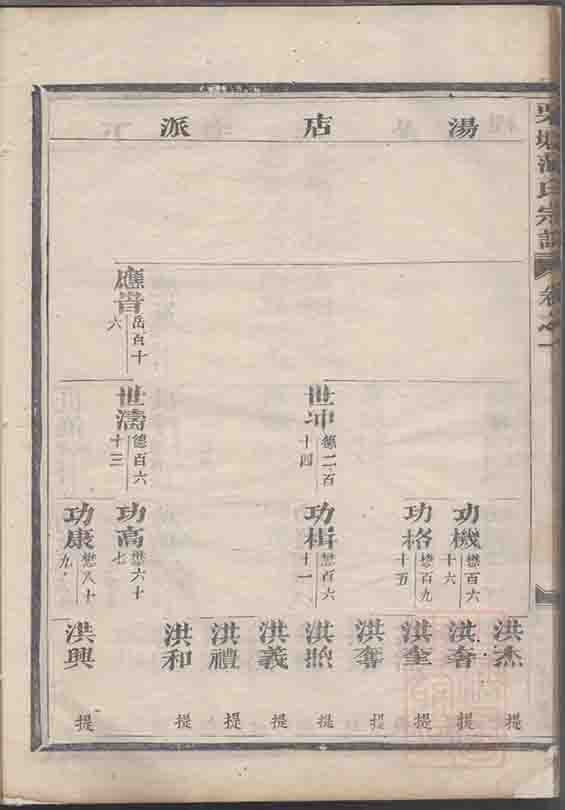 湯店派
應貴
岳百十六
世冲
德二百十四
世濤
德百六十三
功機
懋百六十六
功格
懋百九十五
功楫
懋百六十一
功高
懋六十七
功康
懋八十九
洪杰 提
洪奢 提
洪奎 提
洪奪
洪照 提
洪義 提
洪禮 提
洪和 提
洪興 提
氏宗譜
卷之一